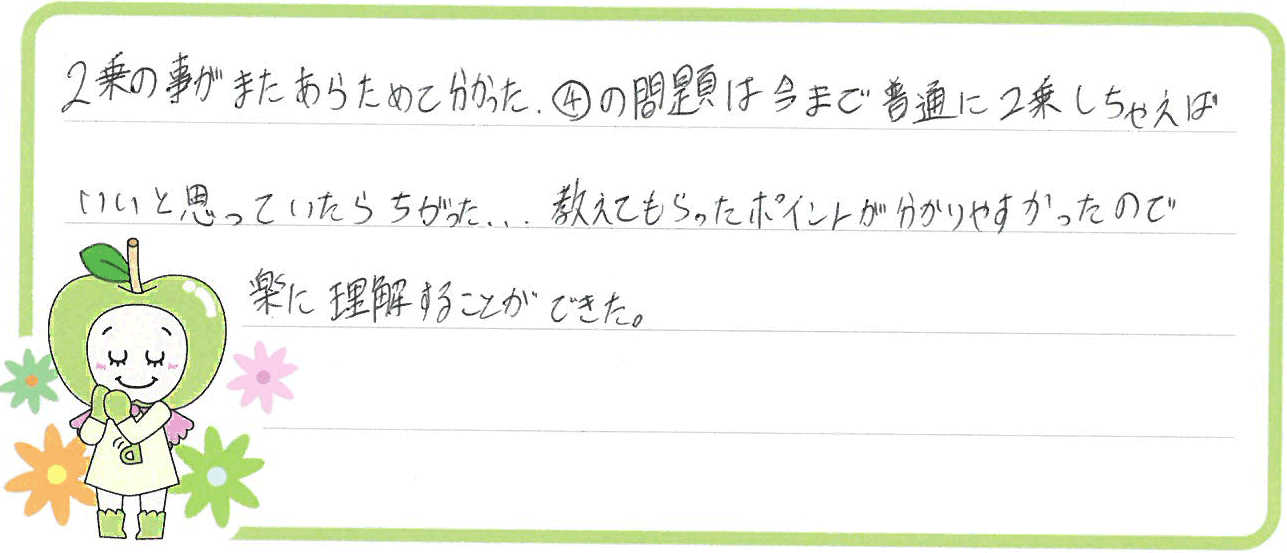 2乗の事がまたあらためて分かった.④の問題は今まで普通に2乗しちゃえば
いいと思っていたらちがった... 教えてもらったポイントが分かりやすかったので
楽に理解することができた。